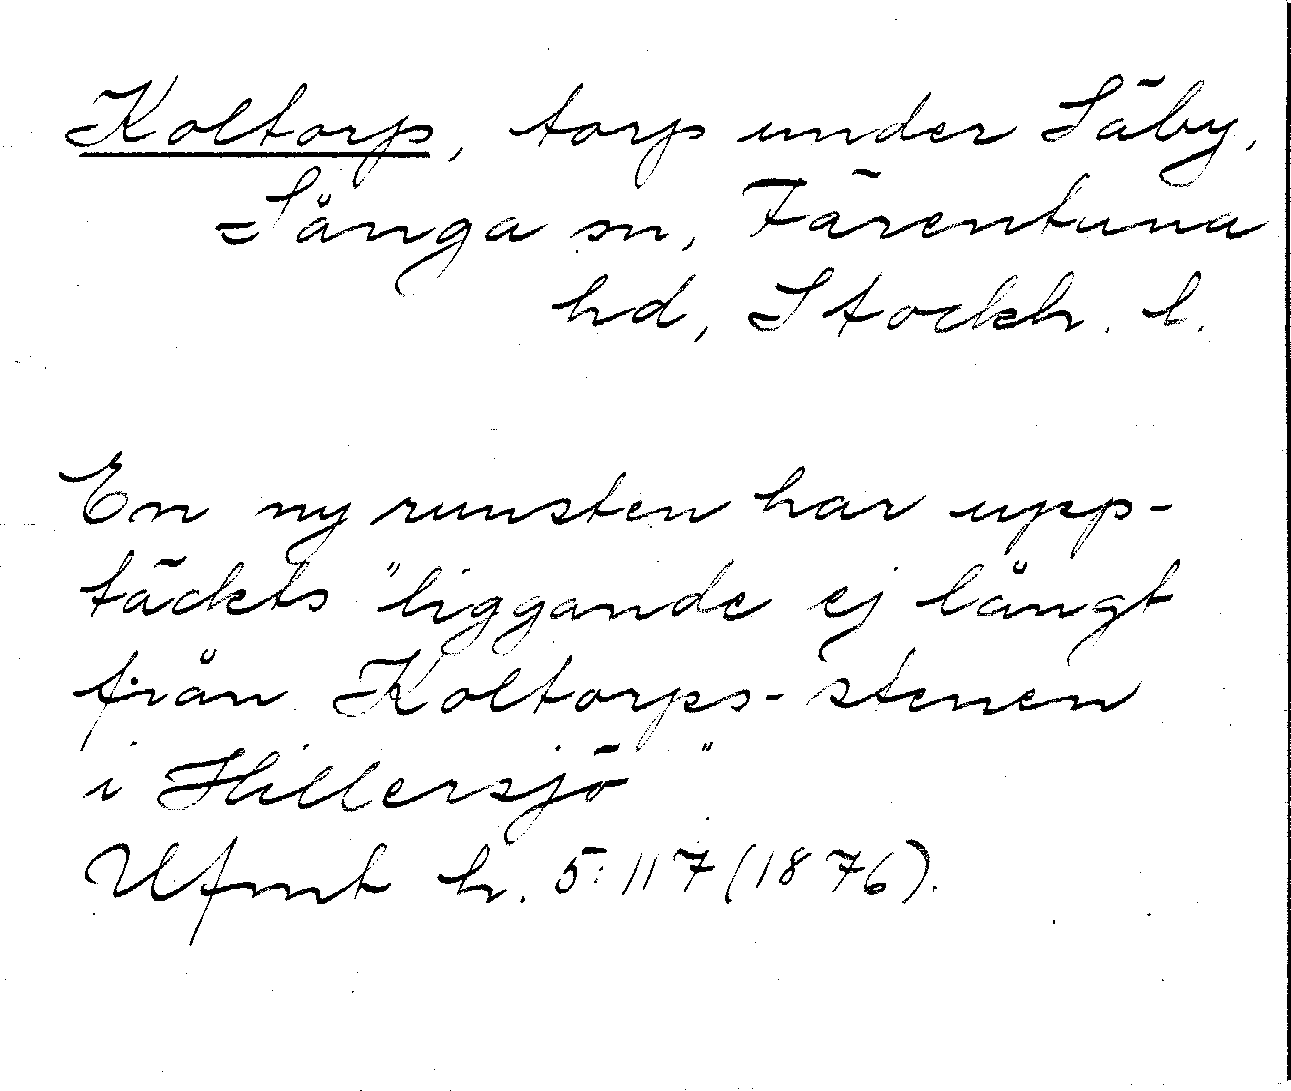 Koltorp, torp under Säby,
Sånga sn, Färentuna
hd, Stockh. l.
En ny runsten har upp-
täckts "liggande ej långt
från Koltorps-stenen
i Hillersjö"
Ufmt h. 5:117 (1876).